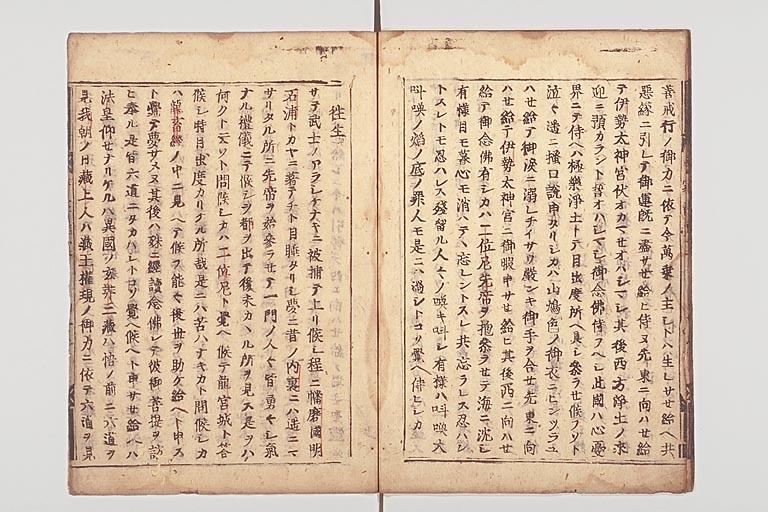 善戒行ノ御力ニ依テ今萬乗ノ主トハ生レサせ給ヘ共
悪縁ニ引レテ御運既ニ盡サせ給ヒ侍ヌ先東ニ向ハせ給
テ伊勢太神宮伏オカマせオハシマシ其後西方浄土ノ来
迎ニ預カラント誓オハシマシ御念佛侍ラヘシ此國ハ心憂
界ニテ侍ヘハ極樂浄土トテ目出度所ヘ具シ参ラせ候フソト
泣々遥ニ掻口説申タリシカハ山鳩色ノ御衣ニヒンツラユ
ハせ給テ御涙ニ溺レチイサウ厳シキ御手ヲ合せ先東ニ向
ハせ給テ伊勢太神宮ニ御暇申サせ給ヒ其後西ニ向ハせ
給テ御念佛有シカハ二位尼先帝ヲ抱参ラせテ海ニ沈シ
有様目モ暮心モ消ハテヽ忘レントスレ共忘ラレス忍ハン
トスレトモ忍ハレス残留ル人々ノ喚キ叫シ有様ハ叫喚大
叫喚ノ焔ノ底ノ罪人モ是ニハ過シトコソ覺ヘ侍ヒシカ
往生
サテ武士ノアラケナキニ被捕テ上リ候シ程ニ幡磨國明
石浦トカヤニ著テチト目睡タリシ夢ニ昔ノ内裏ニハ遥ニマ
サリタル所ニ先帝ヲ始参ラせテ一門ノ人々皆勇々シ氣
ナル禮儀ニテ候シヲ都ヲ出テ後未カヽル所ヲ見ス是ヲハ
何クト云ソト問候シカハ二位尼ト覺ヘ候テ龍宮城ト答
候シ時目出度カリケル所哉是ニハ苦ハナキカト問候シカ
ハ龍畜經ノ中ニ見ヘテ候ヲ能々後世ヲ助ケ給ヘト申ス
ト覺テ夢サメヌ其後ハ殊ニ經讀念佛シテ彼御菩提ヲ訪
ヒ奉ル是皆六道ニタカハシトコソ覺ヘ候ヘト申サせ給ヘハ
法皇仰せナリケルハ異國ノ玄弉三藏ハ悟ノ前ニ六道ヲ
見我朝ノ日藏上人ハ藏王權現ノ御力ニ依テ六道ヲ見